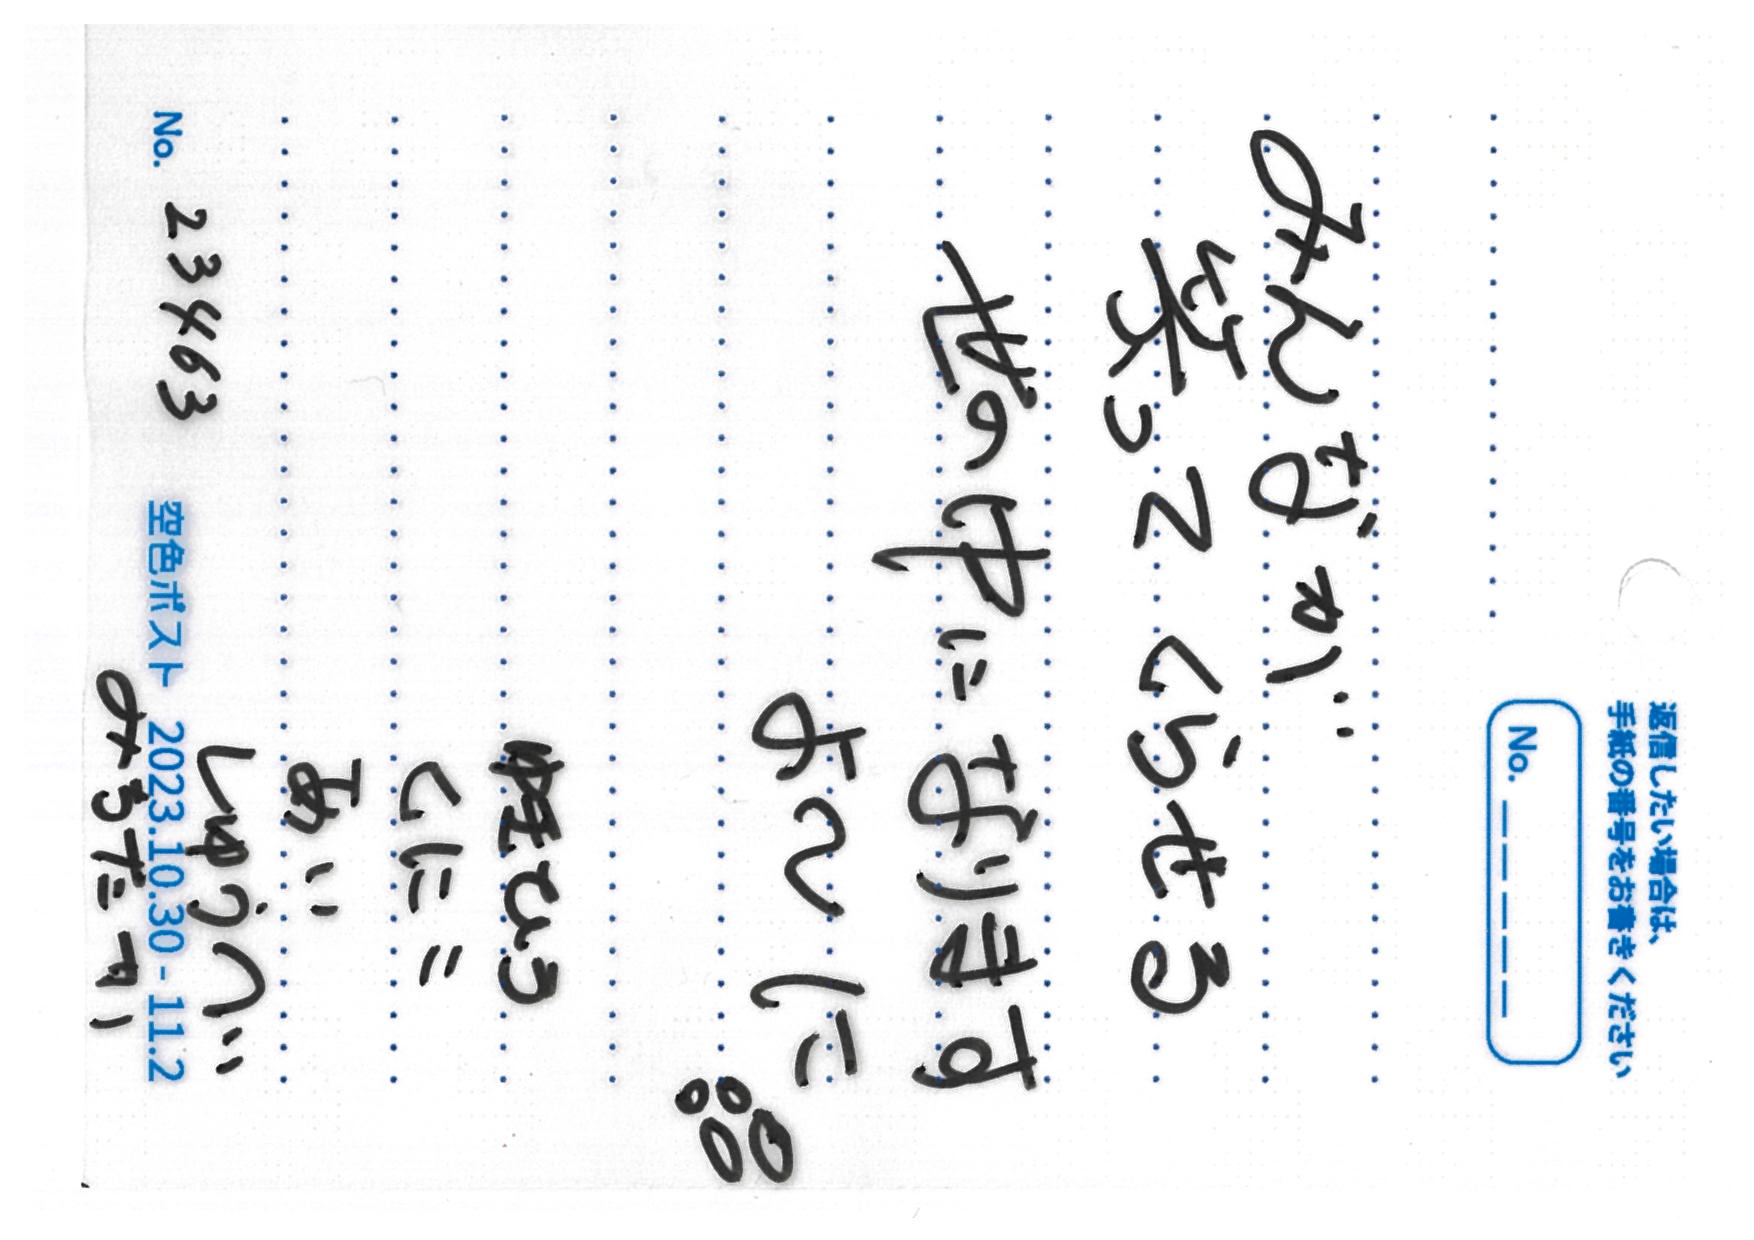 返信したい場合は、
手紙の番号をお書きください
No. _ _ _ _ _
みんなが
笑ってくらせる
世の中になります
よ〜に
ゆきひろ
くにこ
あい
しゅうへい
No. 23463 空色ポスト 2023.10.30 - 11.2
みちたか